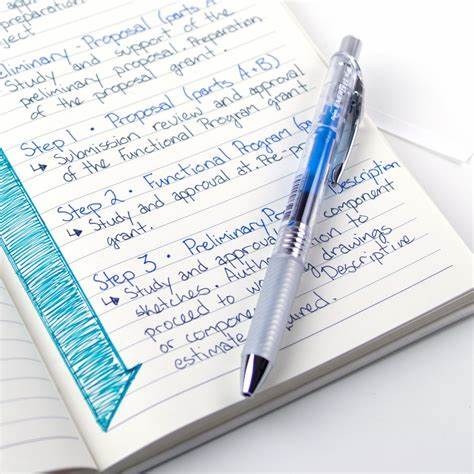 preparation
ject
Preliminary · Proposal (parts A
Study and support of the
preliminary proposal. Preparation
of the proposal grant.
Step 1 · Proposal (parts A+B)
↳ Submission review and approval
of the Functional Program grant.
Step 2 · Functional Program (p
↳ Study and approval at. Pre-pr
grant.
Step 3 · Preliminary Pro Description
↳ Study and approval component
sketches. Auth ion to
proceed to wo g drawings
or compone Descriptive
estimate ired.